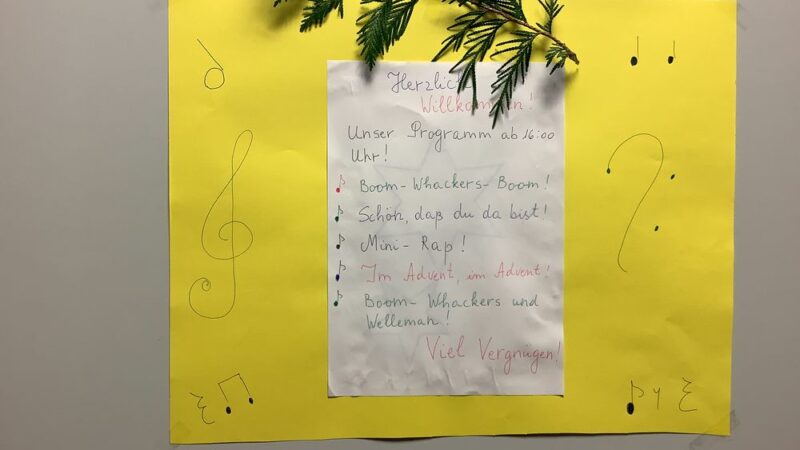 Herzlich
Willkommen!
Unser Programm ab 16:00
Uhr!
Boom-Whackers-Boom!
Schön, daß du da bist!
Mini-Rap!
Im Advent, im Advent!
Boom-Whackers und
Welleman!
Viel Vergnügen!